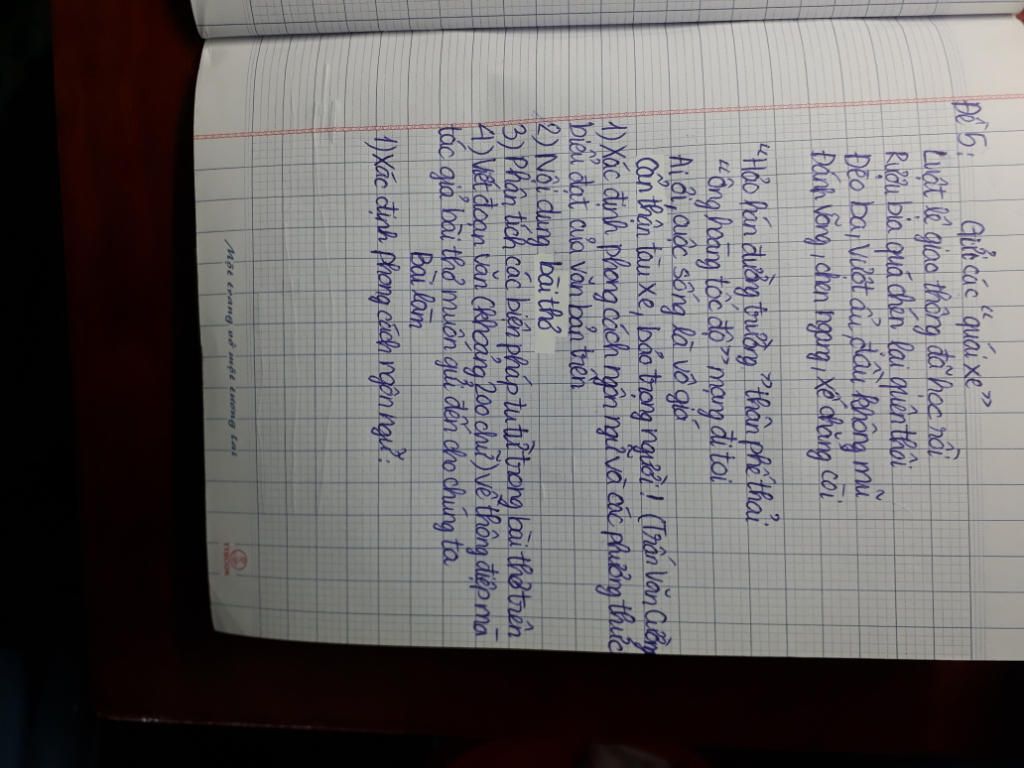 Đề 5: Gửi các "quái xế"
Luật lệ giao thông đã học rồi
Rượu bia quá chén lại quên thôi
Đèo ba, vượt ẩu, đầu không mũ
Đánh võng, chen ngang, xế chẳng còi
"Hảo hán đường trường" thân phế thải
"Ông hoàng tốc độ" mạng đi toi
Ai ơi, cuộc sống là vô giá
Cẩn thận tàu xe, bảo trọng người! (Trần Văn Cường
1) Xác định phong cách ngôn ngữ và các phương thức
biểu đạt của văn bản trên
2) Nội dung bài thơ
3) Phân tích các biện pháp tu từ trong bài thơ trên
4) Viết đoạn văn (khoảng 200 chữ) về thông điệp mà
tác giả bài thơ muốn gửi đến cho chúng ta
Bài làm
1) Xác định phong cách ngôn ngữ:
Một trang vở một tương lai